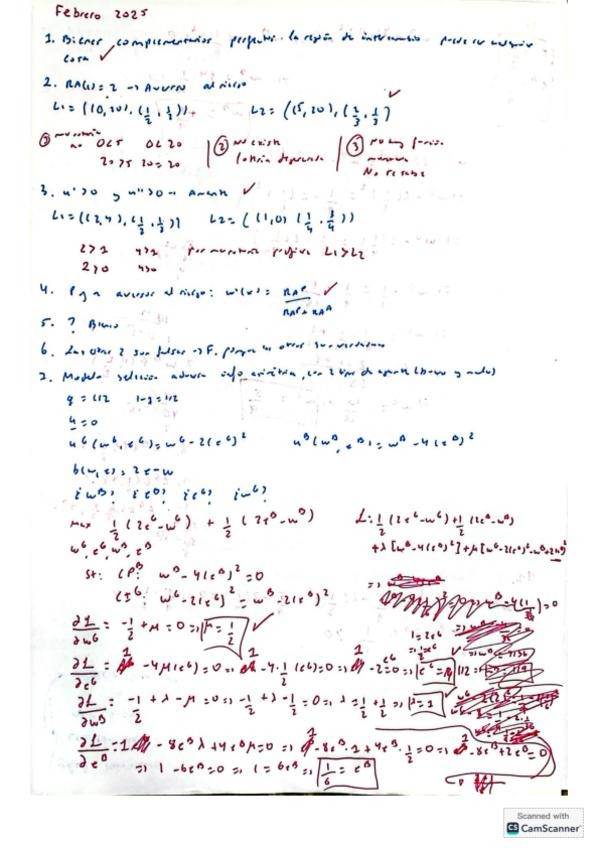 Febrero 2025
1. Bienes complementarios perfectos. la región de intercambio puede ser cualquier
cosa ✓
2. RA(x) = 2 → Averso al riesgo
L1 = ((10,20), (1/2, 1/2)) L2 = ((5,20), (2/3, 1/3)) ✓
① 0<5 0<20 ② No existe ③ No hay
20>5 20=20 lotería
3. u'>0 y u''>0 → Amante ✓
L1 = ((2,4), (1/2, 1/2)) L2 = ((1,0) (1/4, 3/4))
2>1 4>1 L1>L2
2>0 4>0
4. P y A aversos al riesgo: w'(x) = RAP / RAP + RAA ✓
5. ?
6. Las otras 2 son falsas → F. porque las otras son verdaderas
7. Modelo selección adversa info asimétrica, con 2 tipos de agente (buenos y malos)
q = 1/2 1-q = 1/2
u = 0
u^G(w^G, e^G) = w^G - 2(e^G)^2 u^B(w^B, e^B) = w^B - 4(e^B)^2
b(w,e) = 2e - w
¿w^B? ¿e^B? ¿e^G? ¿w^G?
max 1/2 (2e^G - w^G) + 1/2 (2e^B - w^B) L: 1/2 (2e^G - w^G) + 1/2 (2e^B - w^B)
w^G, e^G, w^B, e^B + λ[w^B - 4(e^B)^2] + μ[w^G - 2(e^G)^2 - w^B + 2(e^B)^2]
st: CP^B: w^B - 4(e^B)^2 = 0
CI^G: w^G - 2(e^G)^2 = w^B - 2(e^B)^2
∂L/∂w^G = -1/2 + μ = 0 => μ = 1/2 ✓
∂L/∂e^G = 1 - 4μ(e^G) = 0 => 1 - 4·1/2 (e^G) = 0 => 1 - 2e^G = 0 => e^G = 1/2
∂L/∂w^B = -1/2 + λ - μ = 0 => -1/2 + λ - 1/2 = 0 => λ = 1/2 + 1/2 => λ = 1 ✓
∂L/∂e^B = 1 - 8e^B λ + 4e^B μ = 0 => 1 - 8e^B · 1 + 4e^B · 1/2 = 0 => 1 - 8e^B + 2e^B = 0
=> 1 - 6e^B = 0 => 1 = 6e^B => 1/6 = e^B
Scanned with
CS CamScanner